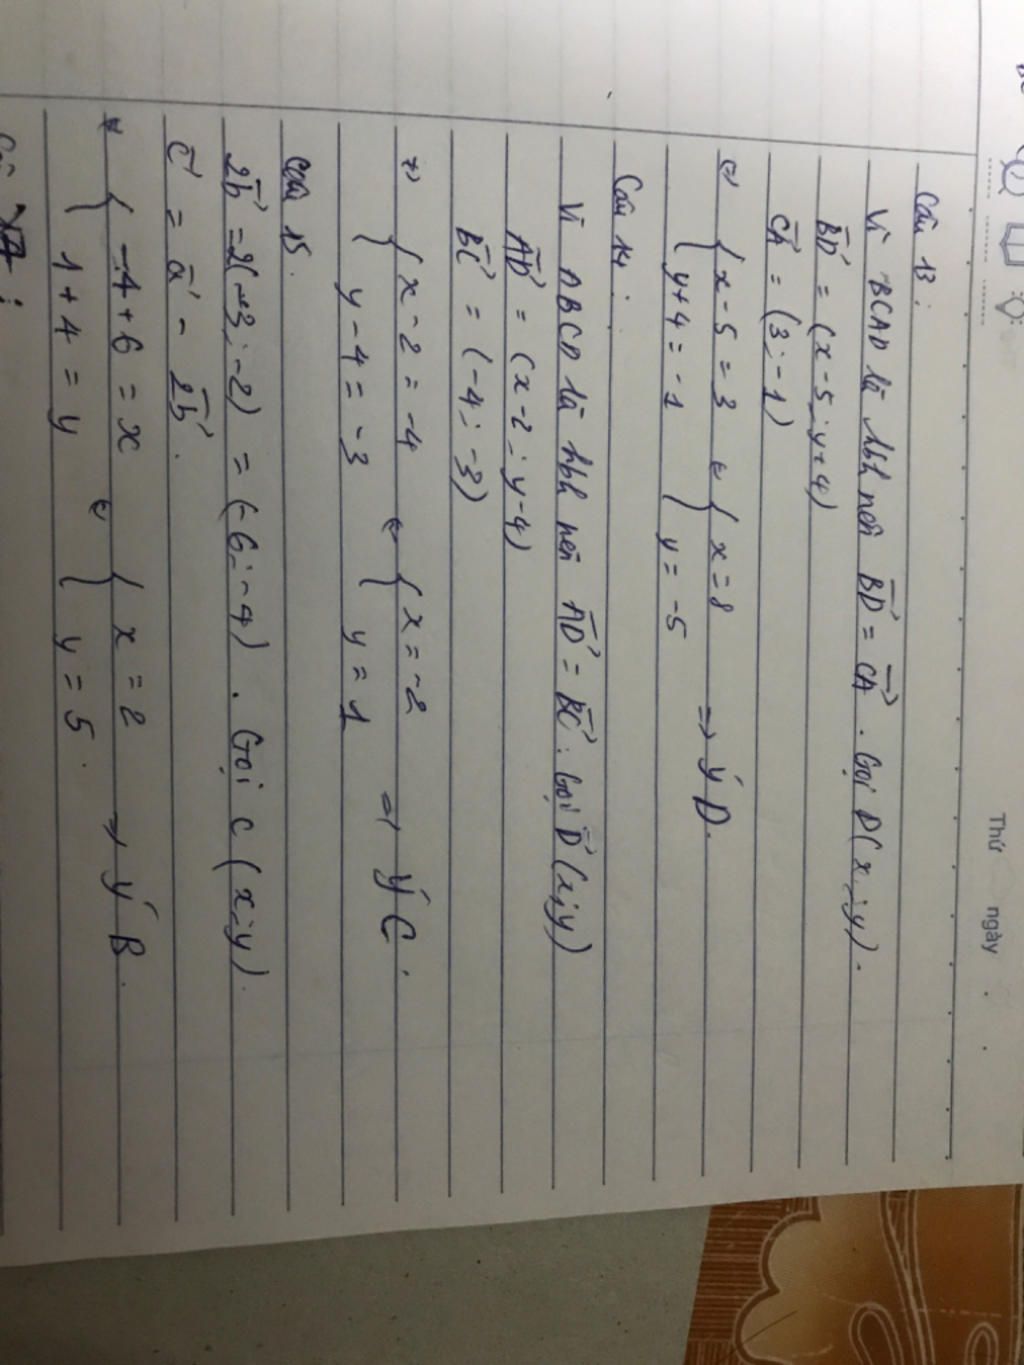 Thứ ngày
Câu 13 :
Vì BCAD là hbh nên BD→ = CA→ . Gọi D(x ; y).
BD→ = (x-5 ; y+4)
CA→ = (3 ; -1)
⇔ { x-5 = 3 ⇔ { x = 8
{ y+4 = -1 { y = -5 ⇒ Ý D.
Câu 14 :
Vì ABCD là hbh nên AD→ = BC→ . Gọi D→(x;y)
AD→ = (x-2 ; y-4)
BC→ = (-4 ; -3)
⇔ { x-2 = -4 ⇔ { x = -2
{ y-4 = -3 { y = 1 ⇒ Ý C.
Câu 15.
2b→ = 2(-3 ; -2) = (-6 ; -4) . Gọi c (x ; y).
c→ = a→ - 2b→.
⇔ { -4+6 = x ⇔ { x = 2 ⇒ Ý B.
{ 1+4 = y { y = 5.